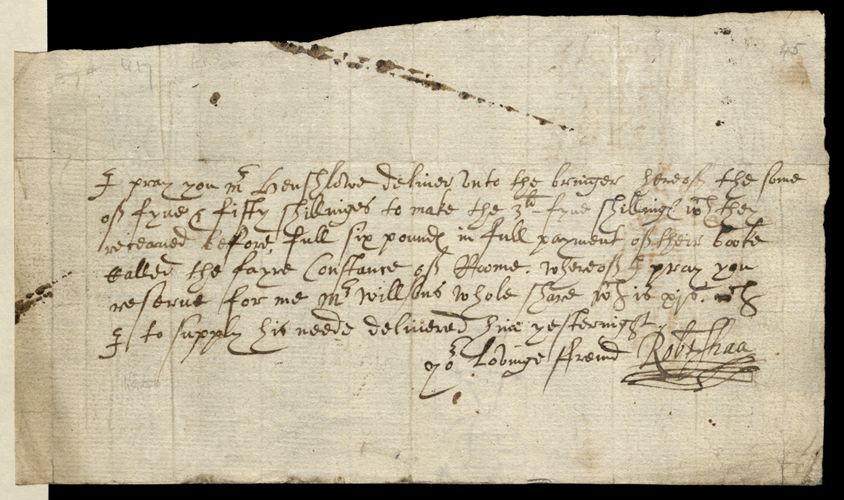 45
I pray you Mr Henshlowe deliver vnto the bringer hereof the some
of fyve & fifty shillinges to make the 3ll fyve shillinges wch they
receaued before, full six poundes in full payment of their booke
Called the fayre Constance of Roome. whereof I pray you
reserue for me Mr Willsons whole share wch is xjs. wch
I to supply his neede deliuered him yesternight.
yor Lovinge ffreind Robt Shaa